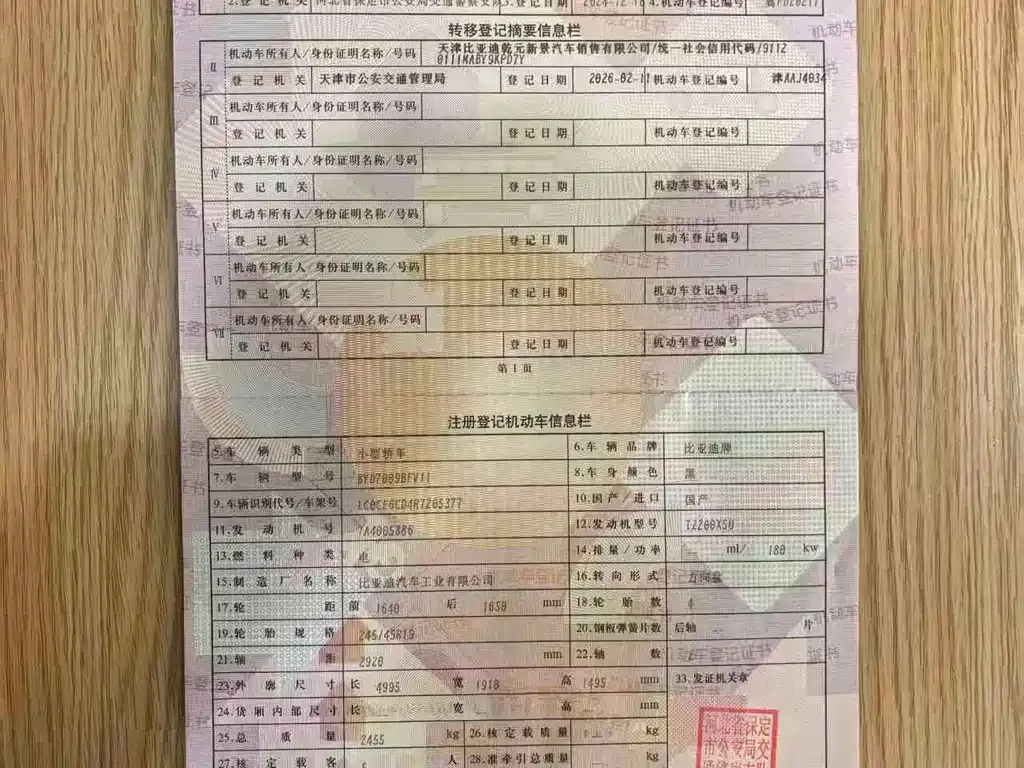 2.登记机关 河北省保定市公安局交通警察支队 3.登记日期 2024-12-18 4.机动车登记编号
转移登记摘要信息栏
II 机动车所有人/身份证明名称/号码 天津比亚迪乾元新景汽车销售有限公司/统一社会信用代码/9112
0111MABY9KPD7Y
登记机关 天津市公安交通管理局 登记日期 2026-02-11 机动车登记编号 津AAJ4034
III 机动车所有人/身份证明名称/号码
登记机关 登记日期 机动车登记编号
IV 机动车所有人/身份证明名称/号码
登记机关 登记日期 机动车登记编号
V 机动车所有人/身份证明名称/号码
登记机关 登记日期 机动车登记编号
VI 机动车所有人/身份证明名称/号码
登记机关 登记日期 机动车登记编号
VII 机动车所有人/身份证明名称/号码
登记机关 登记日期 机动车登记编号
第1页
注册登记机动车信息栏
5.车辆类型 小型轿车 6.车辆品牌 比亚迪牌
7.车辆型号 8.车身颜色 黑
9.车辆识别代号/车架号 LC0CE6CD4R7205377 10.国产/进口 国产
11.发动机号 7A4005886 12.发动机型号 TZ200XSU
13.燃料种类 电 14.排量/功率 ml/ 180 kw
15.制造厂名称 比亚迪汽车工业有限公司 16.转向形式 方向盘
17.轮距 前 1640 后 1650 mm 18.轮胎数 4
19.轮胎规格 245/45R19 20.钢板弹簧片数 后轴 片
21.轴距 2920 mm 22.轴数
23.外廓尺寸 长 4995 宽 1910 高 1495 mm 33.发证机关章
24.货厢内部尺寸 长 宽 高 mm
25.总质量 2455 kg 26.核定载质量 kg
27.核定载客 人 28.准牵引总质量 kg
河北省保定
市公安局交